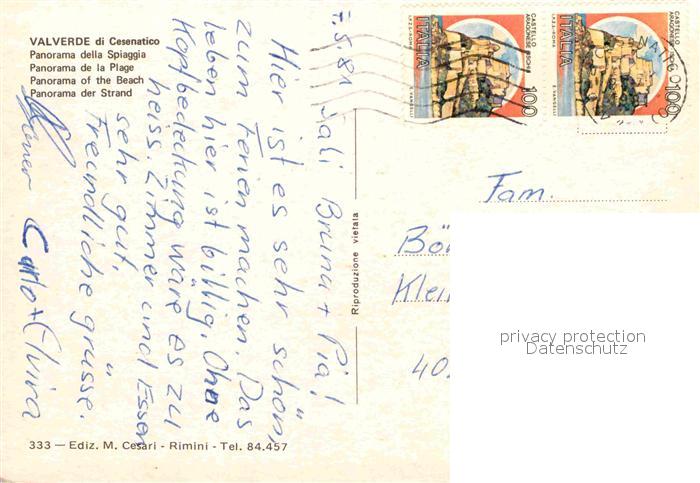 VALVERDE di Cesenatico
Panorama della Spiaggia
Panorama de la Plage
Panorama of the Beach
Panorama der Strand
7.5.81
Sali Bruna + Pia!
Hier ist es sehr schön,
zum Ferien machen. Das
leben hier ist billig. Ohne
Kopfbedeckung wäre es zu
heiss. Zimmer und Essen
sehr gut.
Freundliche grüsse.
Carlo + Elvira
333 — Ediz. M. Cesari - Rimini - Tel. 84.457
Riproduzione vietata
CASTELLO
ARAGONESE ISCHIA
ITALIA
100
I.P.Z.S. - ROMA
E. VANGELLI
CASTELLO
ARAGONESE ISCHIA
ITALIA
100
I.P.Z.S. - ROMA
E. VANGELLI
Fam.
Bö
Klei
40
privacy protection
Datenschutz